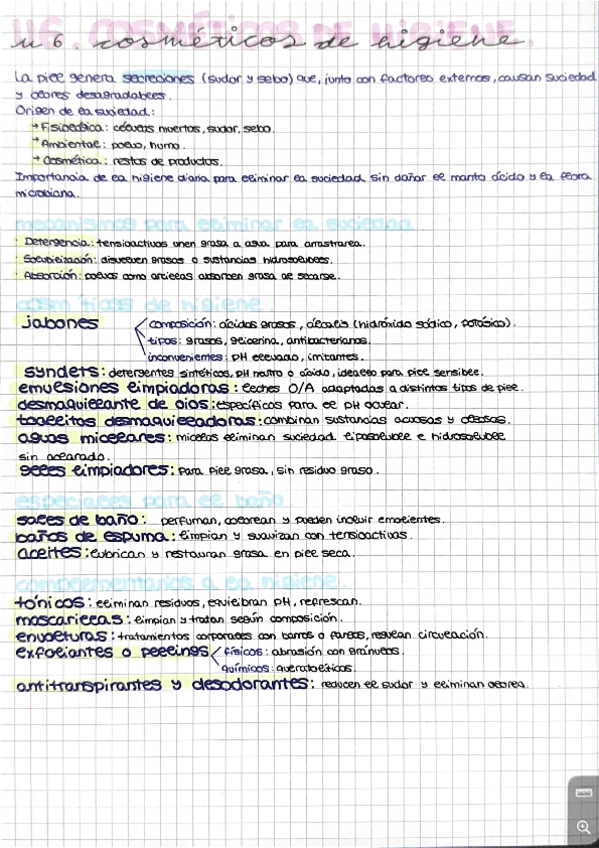 U6. COSMÉTICOS DE HIGIENE.
u 6. cosméticos de higiene.
La piel genera secreciones (sudor y sebo) que, junto con factores externos, causan suciedad
y olores desagradables.
Origen de la suciedad:
→ Fisiológica: células muertas, sudor, sebo.
→ Ambiental: polvo, humo.
→ Cosmética: restos de productos.
Importancia de la higiene diaria para eliminar la suciedad sin dañar el manto ácido y la flora
microbiana.
mecanismos para eliminar la suciedad
· Detergencia: tensioactivos unen grasa a agua para arrastrarla.
· Solubilización: disuelven grasas o sustancias hidrosolubles.
· Absorción: polvos como arcillas absorben grasa al secarse.
cosméticos de higiene
jabones
composición: ácidos grasos, álcalis (hidróxido sódico, potásico).
tipos: grasos, glicerina, antibacterianos.
inconvenientes: pH elevado, irritantes.
syndets: detergentes sintéticos, pH neutro o ácido, ideales para piel sensible.
emulsiones limpiadoras: leches O/A adaptadas a distintos tipos de piel.
desmaquillante de ojos: específicos para el pH ocular.
toallitas desmaquilladoras: combinan sustancias acuosas y oleosas.
aguas micelares: micelas eliminan suciedad liposoluble e hidrosoluble
sin aclarado.
geles limpiadores: para piel grasa, sin residuo graso.
especiales para el baño
sales de baño: perfuman, colorean y pueden incluir emolientes.
baños de espuma: limpian y suavizan con tensioactivos.
aceites: lubrican y restauran grasa en piel seca.
complementarios a la higiene.
tónicos: eliminan residuos, equilibran pH, refrescan.
mascarillas: limpian y tratan según composición.
envolturas: tratamientos corporales con barros o fangos, regulan circulación.
exfoliantes o peelings
físicos: abrasión con gránulos.
químicos: queratolíticos.
antitranspirantes y desodorantes: reducen el sudor y eliminan olores.